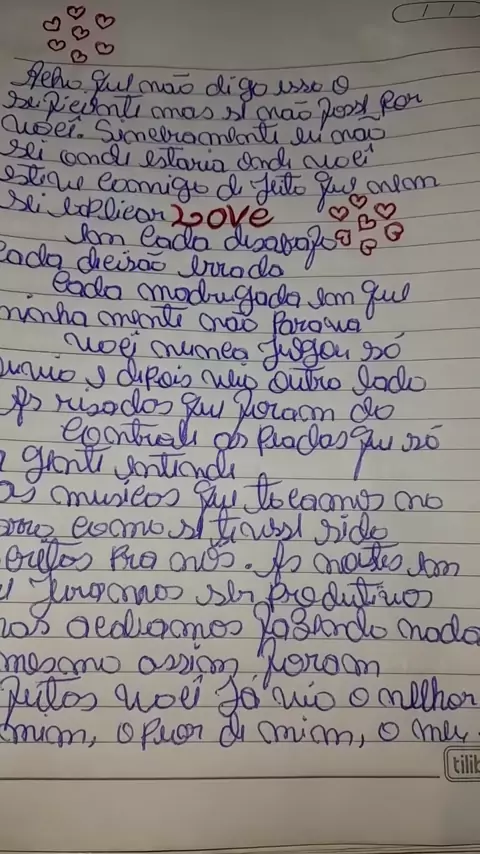 Acho que não digo isso o
suficiente mas si não fossi por
você. Sinceramente eu não
sei ondi estaria ondi você
estive comigo di jeito que nem
sei explicar LOVE
em cada desabafo
cada dicisão errada
Cada madrugada em que
minha menti não parava
você nunca julgou só
ouviu e depois veio outro lado
As risadas que foram do
controli as piadas que só
a genti entendi
As musicas que tocamos no
como si tivessi sido
pra nós. As noites em
juramos ser produtivos
mas acabamos fazendo nada
mesmo assim foram
você já viu o melhor
mim, o pior di mim, o meu
tilib